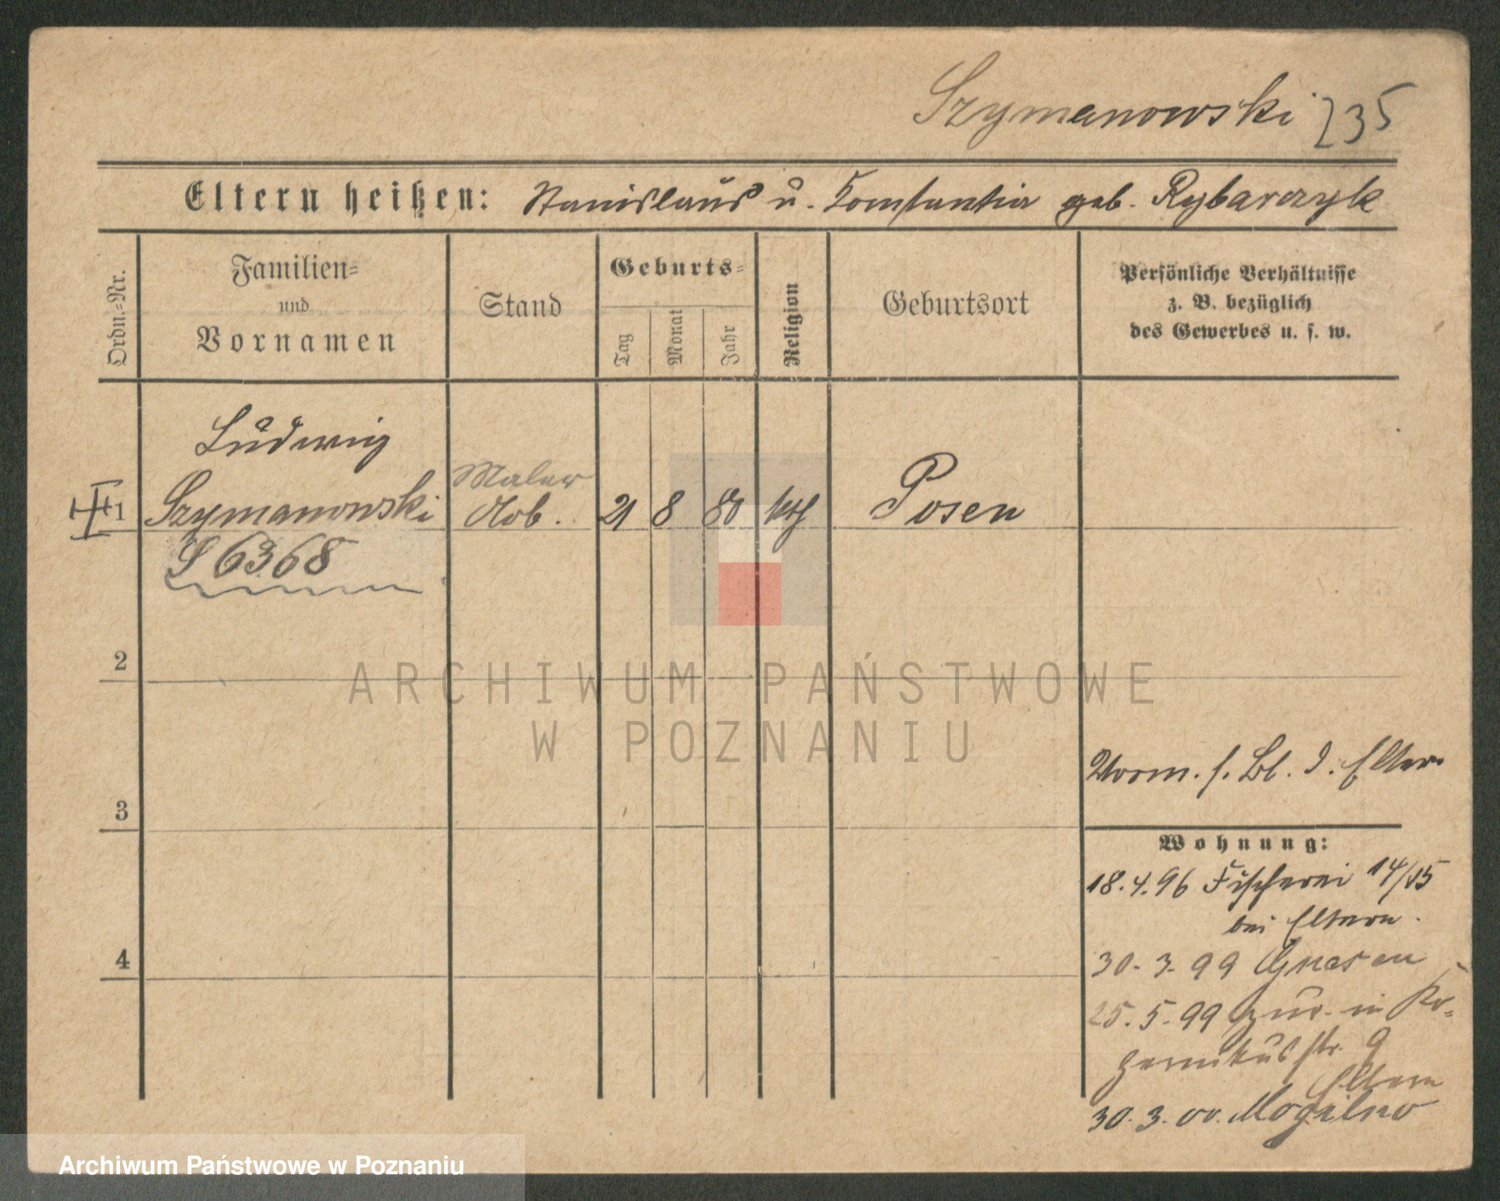 Szymanowski 235
Eltern heißen: Stanislaus u. Constantia geb. Rybarczyk
Ordn.-Nr.
Familien-
und
Vornamen
Stand
Geburts-
Tag
Monat
Jahr
Religion
Geburtsort
Persönliche Verhältnisse
z. B. bezüglich
des Gewerbes u. s. w.
Ludwig
Maler
1 Szymanowski Mob. 21 8 80 kth Posen
S 6368
2
ARCHIWUM PAŃSTWOWE
W POZNANIU
Vorm. s. Bl. d. Eltern
3
Wohnung:
18.4.96 Fischerei 14/15
bei Eltern.
4
30.3.99 Gnesen
25.5.99 zur. in Ko-
pernikusstr. 9
Eltern
30.3.00. Mogilno
Archiwum Państwowe w Poznaniu